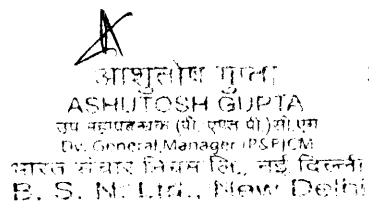 आशुतोष गुप्ता
ASHUTOSH GUPTA
उप महाप्रबन्धक (पी. एण्ड पी.) सी.एम
Dy. General Manager (P&P)CM
भारत संचार निगम लि., नई दिल्ली
B. S. N. Ltd., New Delhi